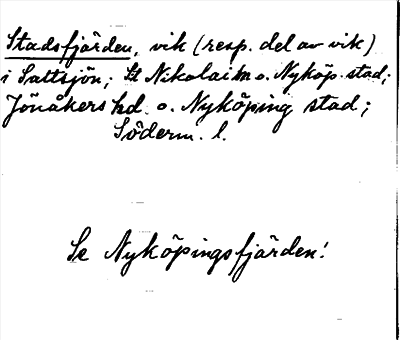 Stadsfjärden, vik (resp. del av vik)
i Saltsjön; St Nikolai ln o. Nyköp. stad;
Jönåkers hd. o. Nyköping stad;
Söderm. l.
Se Nyköpingsfjärden!